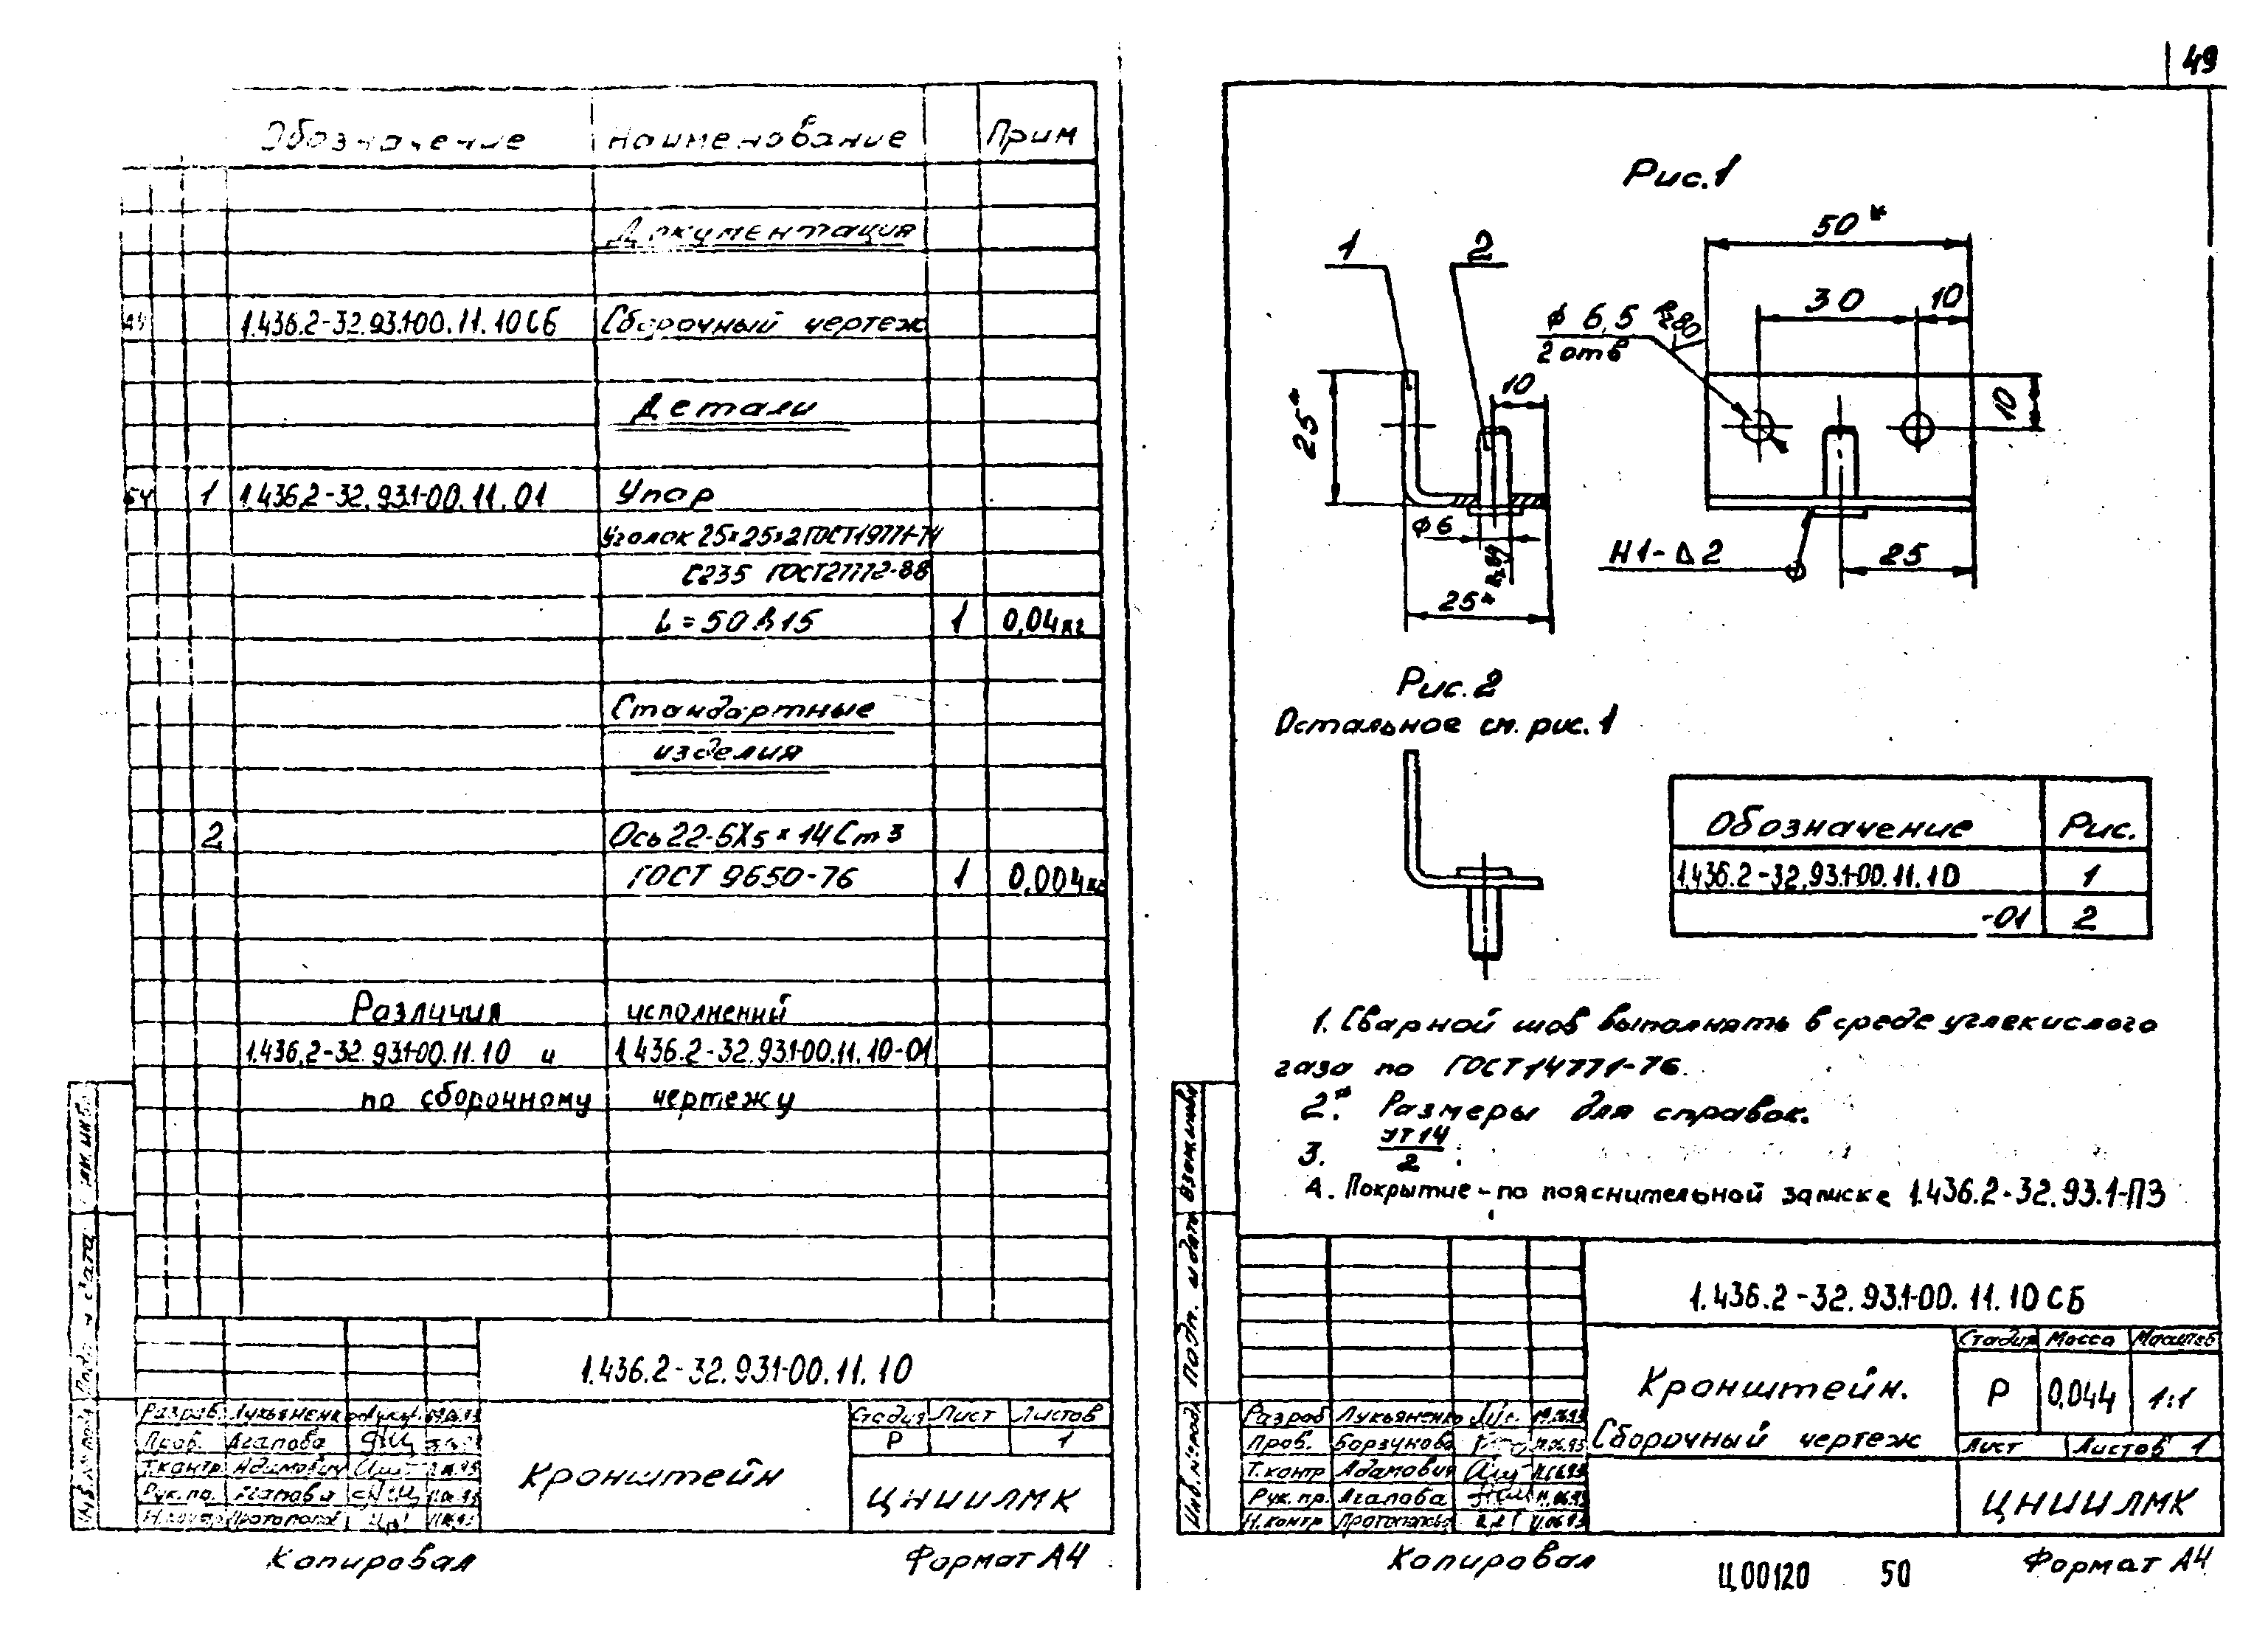 49
Обозначение Наименование Прим
Документация
А4 1.436.2-32.93.1-00.11.10 СБ Сборочный чертеж
Детали
БЧ 1 1.436.2-32.93.1-00.11.01 Упор
Уголок 25×25×2 ГОСТ 19771-74
С235 ГОСТ 27772-88
L=50 h15 1 0,04кг
Стандартные
изделия
2 Ось 22-6Х5×14 Ст3
ГОСТ 9650-76 1 0,004кг
Различия исполнений
1.436.2-32.93.1-00.11.10 и 1.436.2-32.93.1-00.11.10-01
по сборочному чертежу
1.436.2-32.93.1-00.11.10
Разраб. Лукьяненко
Пров. Агапова
Т.контр Адамович
Рук.пр. Агапова
Н.контр
Кронштейн
Стадия Лист Листов
Р 1
ЦНИИЛМК
Копировал Формат А4
Рис.1
1 2
50*
30 10
ϕ 6,5 Rz80
2 отв
10
25*
10
ϕ6
Rz80
25*
Н1-Δ2
25
Рис.2
Остальное см. рис.1
Обозначение Рис.
1.436.2-32.93.1-00.11.10 1
-01 2
1. Сварной шов выполнять в среде углекислого
газа по ГОСТ 14771-76.
2.* Размеры для справок.
3. УТ14
2
4. Покрытие - по пояснительной записке 1.436.2-32.93.1-ПЗ
1.436.2-32.93.1-00.11.10 СБ
Кронштейн.
Сборочный чертеж
Стадия Масса Масштаб
Р 0,044 1:1
Лист Листов 1
ЦНИИЛМК
Разраб Лукьяненко
Пров. Борзунова
Т.контр Адамович 11.06.93
Рук.пр. Агапова 11.06.93
Н.контр 11.06.93
Инв.№подл Подп. и дата Взам.инв
Копировал Ц00120 50 Формат А4